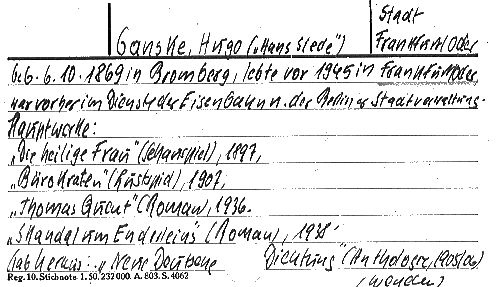 Stadt
Ganske, Hugo („Hans Stede“) Frankfurt Oder
6.10.1869 in Bromberg, lebte vor 1945 in Frankfurt Oder,
war vorher im Dienste der Eisenbahn u. der Berliner Stadtverwaltung.
Hauptwerke:
„Die heilige Frau“ (Schauspiel), 1897,
„Bürokraten“ (Lustspiel), 1907,
„Thomas Quent“ (Roman), 1936.
„Skandal um Enderleins“ (Roman), 1938
gab heraus: „Neue Deutsche Dichtung“ (Anthologie, 1905/06)
Reg. 10. Stichnote. 1. 50, 232000. A. 803. S. 4062